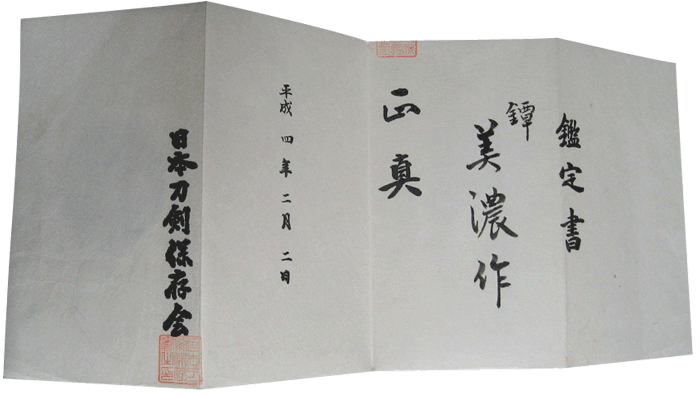 鑑定書
鐔
美濃作
正真
平成四年二月二日
日本刀剣保存会